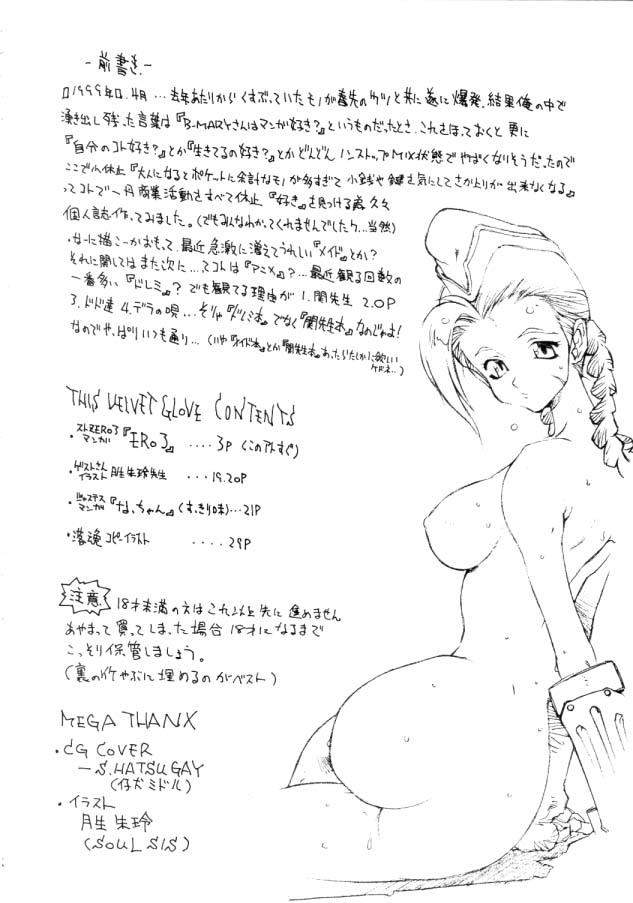 -前書き-
□1999年□.4月...去年あたりからくすぶっていたモノが春先のケツと共に遂に爆発、結果俺の中で
湧き出し残った言葉は『B-MARYさんはマンガ好き?』というものだったとき、これさほっておくと更に
『自分のコト好き?』とか『生きてるの好き?』とかどんどんノンストップMIX状態でやばくなりそうだったので
ここで小休止『大人になるとポケットに余計なモノが多すぎて小銭や鍵を気にしてさか上がりが出来なくなる』
ってコトで一ヶ月商業活動をすべて休止『好き』を見つける為久々
個人誌作ってみました。(でもみんなわかってくれませんでしたケ...当然)
・なーに描こーかおもって、最近急激に増えてうれしい『メイド』とか?
それに関してはまた次に...てコトは『アニメ』?...最近観る回数の
一番多い、『ドレミ』? でも観てる理由が 1.関先生 2.OP
3.ドド達 4.デラの唄...そりゃ『ドレミ本』でなく『関先生本』なのじゃよ!
なのでやっぱりいつも通り...(いや『メイド本』とか『関先生本』あったらたしかに欲しい
ケドネ..)
THIS VELVET GLOVE CONTENTS
・ストZERO3マンガ『ERO3』 ....3P (このアトすぐ)
・ゲストさんイラスト 月生朱玲先生 ...19.20P
・ジャスティスマンガ『なっちゃん』(すっきり味)...21P
・落魂コピーイラスト ....29P
注意
18才未満の方はこれ以上先に進めません
あやまって買ってしまった場合18才になるまで
こっそり保管しましょう。
(裏のイケやぶに埋めるのがベスト)
MEGA THANX
・CG COVER
―S.HATSUGAY
(仔犬ミドル)
・イラスト
月生 朱玲
(SOUL SIS)